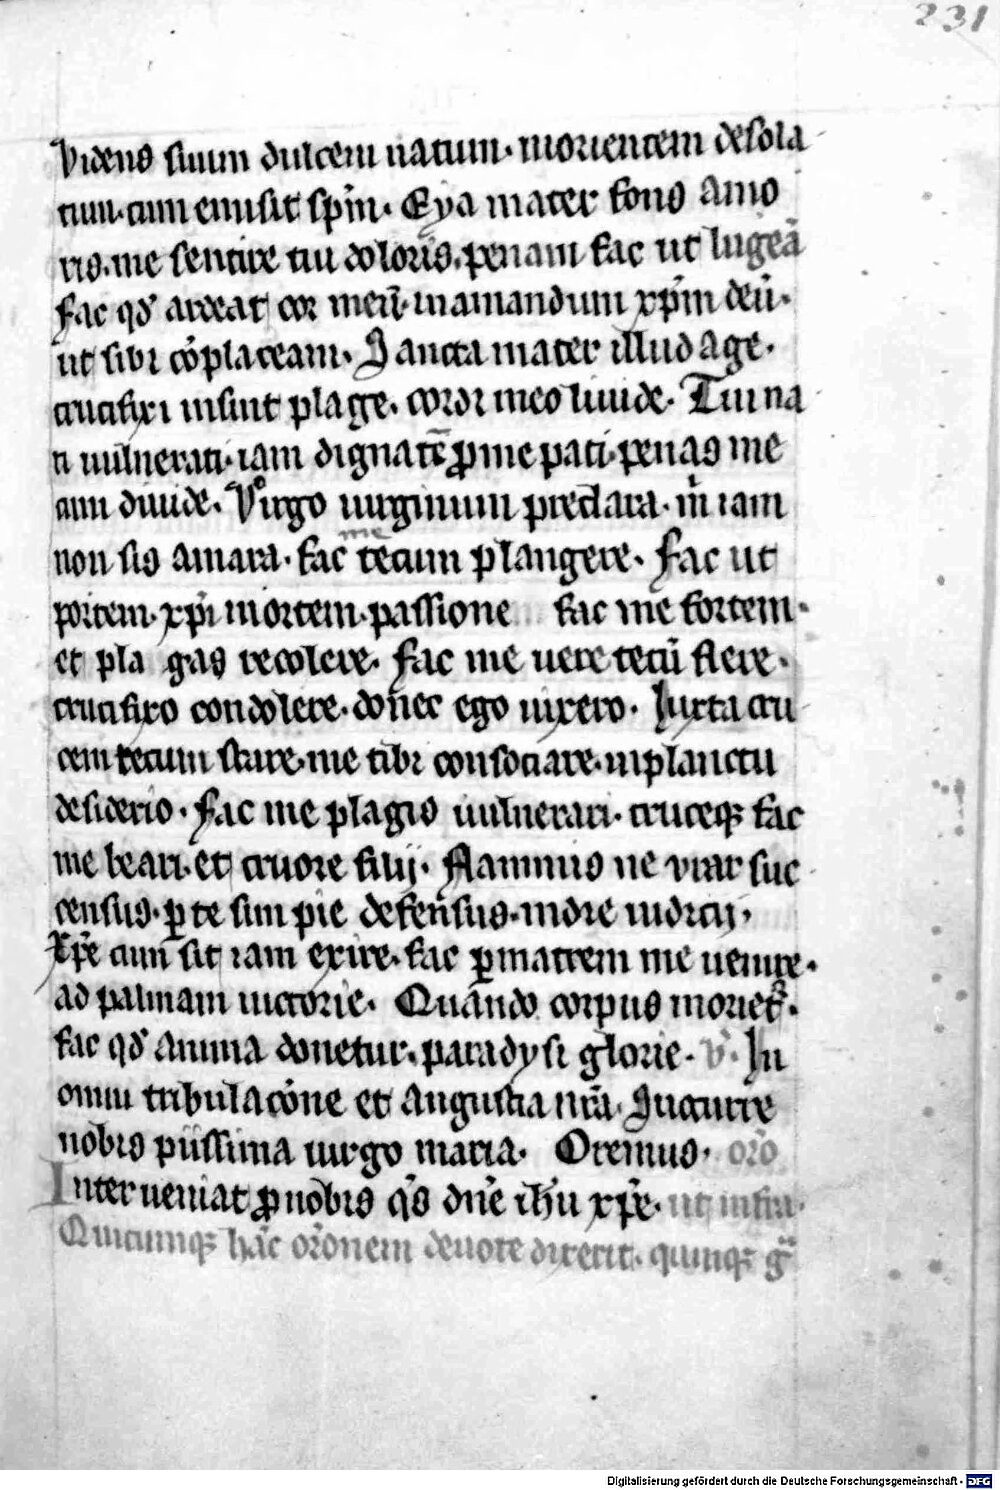 231
Videns suum dulcem natum. morientem desola
tum. cum emisit sp̄m. Eya mater fons amo
ris. me sentire tui doloris. penam fac ut lugeā
Fac qd̓ ardeat cor meū. in amandum xp̄m deū.
ut sibi cōplaceam. Sancta mater illud age.
crucifixi insint plage. cordi meo liuide. Tui na
ti uulnerati. iam dignatē pro me pati. penas me
cum diuide. Virgo uirginum preclara. m̄ iam
non sis amara. fac me tecum plangere. Fac ut
portem. xp̄i mortem. passione fac me fortem.
et pla gas recolere. Fac me uere tecū flere.
crucifixo condolere. donec ego uixero. Iuxta cru
cem tecum stare. me tibi consociare. in planctu
desiderio. Fac me plagis uulnerari. cruceqꝫ fac
me beari. et cruore filij. Flammis ne vrar suc
census. ꝑ te sim pie defensus. in dr̄e iudicij.
xp̄e cum sit iam exire. fac ꝑ matrem me uenire.
ad palmam uictorie. Quando corpus moriet᷑.
fac qd̓ anima donetur. paradysi glorie. v̓. In
omni tribulacōne et angustia nr̄a. Succurre
nobis piissima uirgo maria. Oremus. or̄o
Interueniat ꝓ nobis qs̄ dn̄e ih̄u xp̄e. ut infra.
Quicumqꝫ hāc or̄onem deuote dixerit. quinqꝫ ḡ
Digitalisierung gefördert durch die Deutsche Forschungsgemeinschaft - DFG